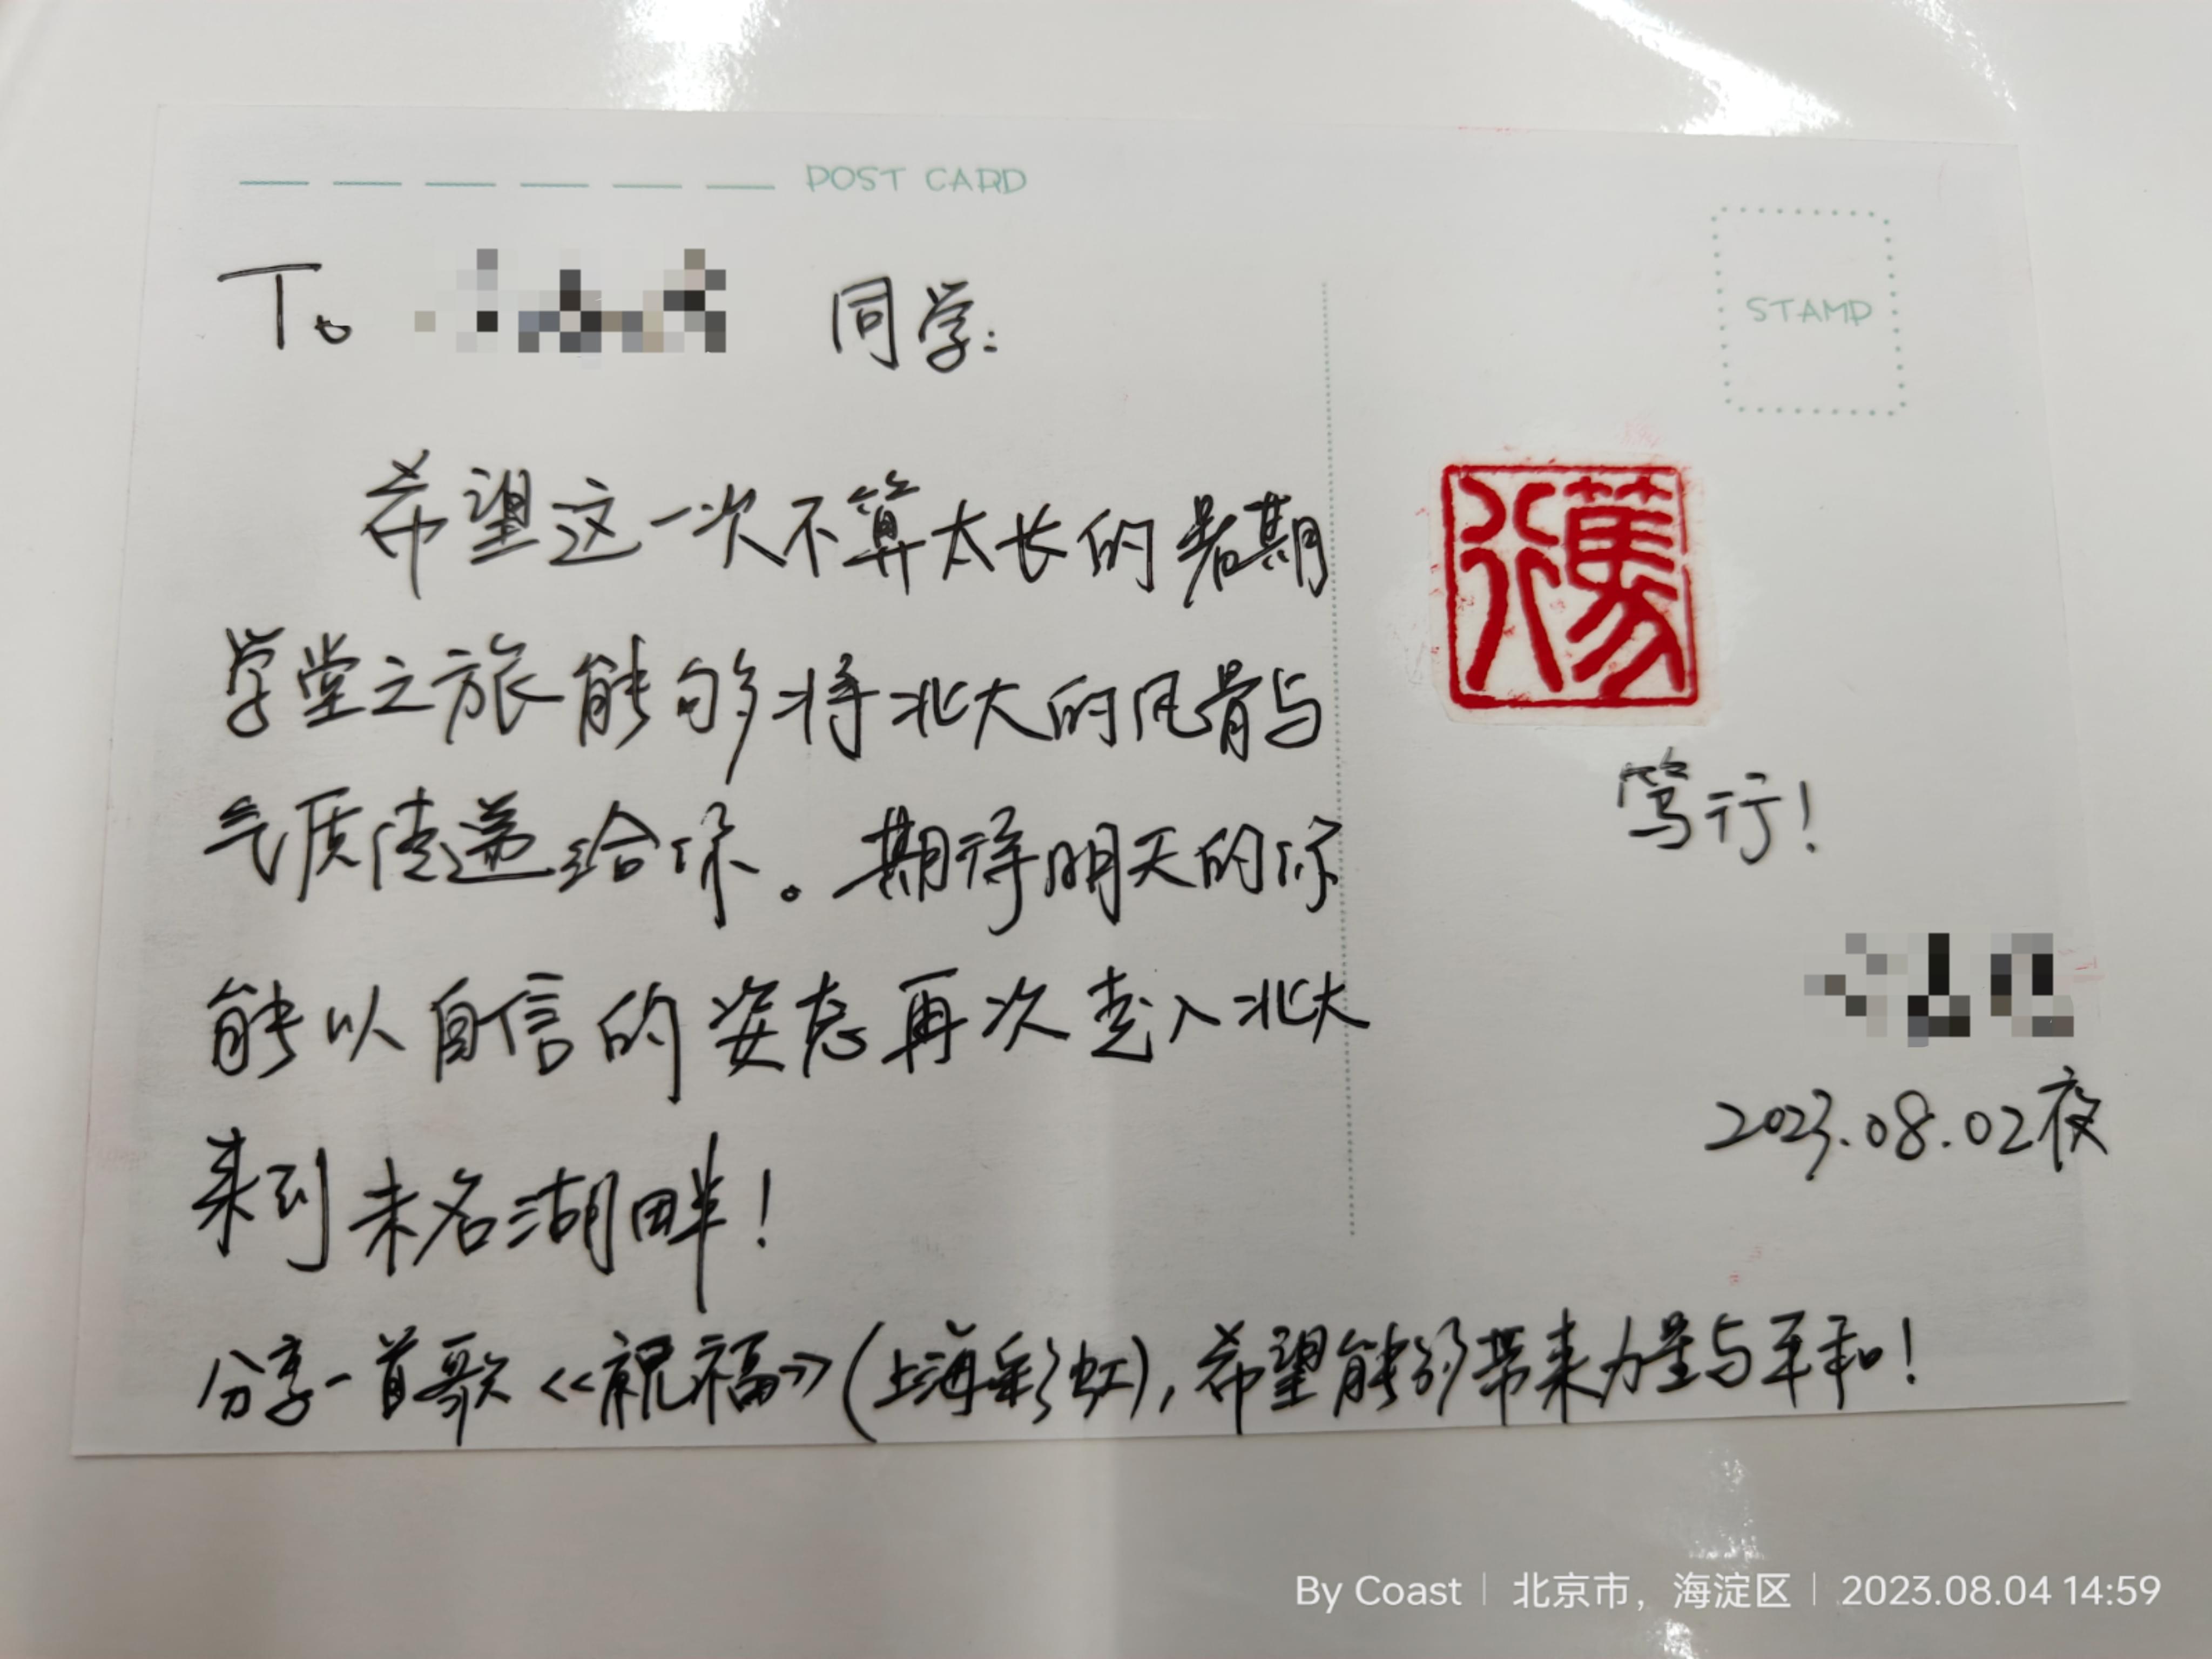 POST CARD
To 同学:
希望这一次不算太长的暑期
学堂之旅能够将北大的风骨与
气质传递给你。期待明天的你
能以自信的姿态再次走入北大
来到未名湖畔!
分享一首歌《祝福》(上海彩虹),希望能够带来力量与平和!
STAMP
篤行
笃行!
2023.08.02夜
By Coast | 北京市，海淀区 | 2023.08.04 14:59